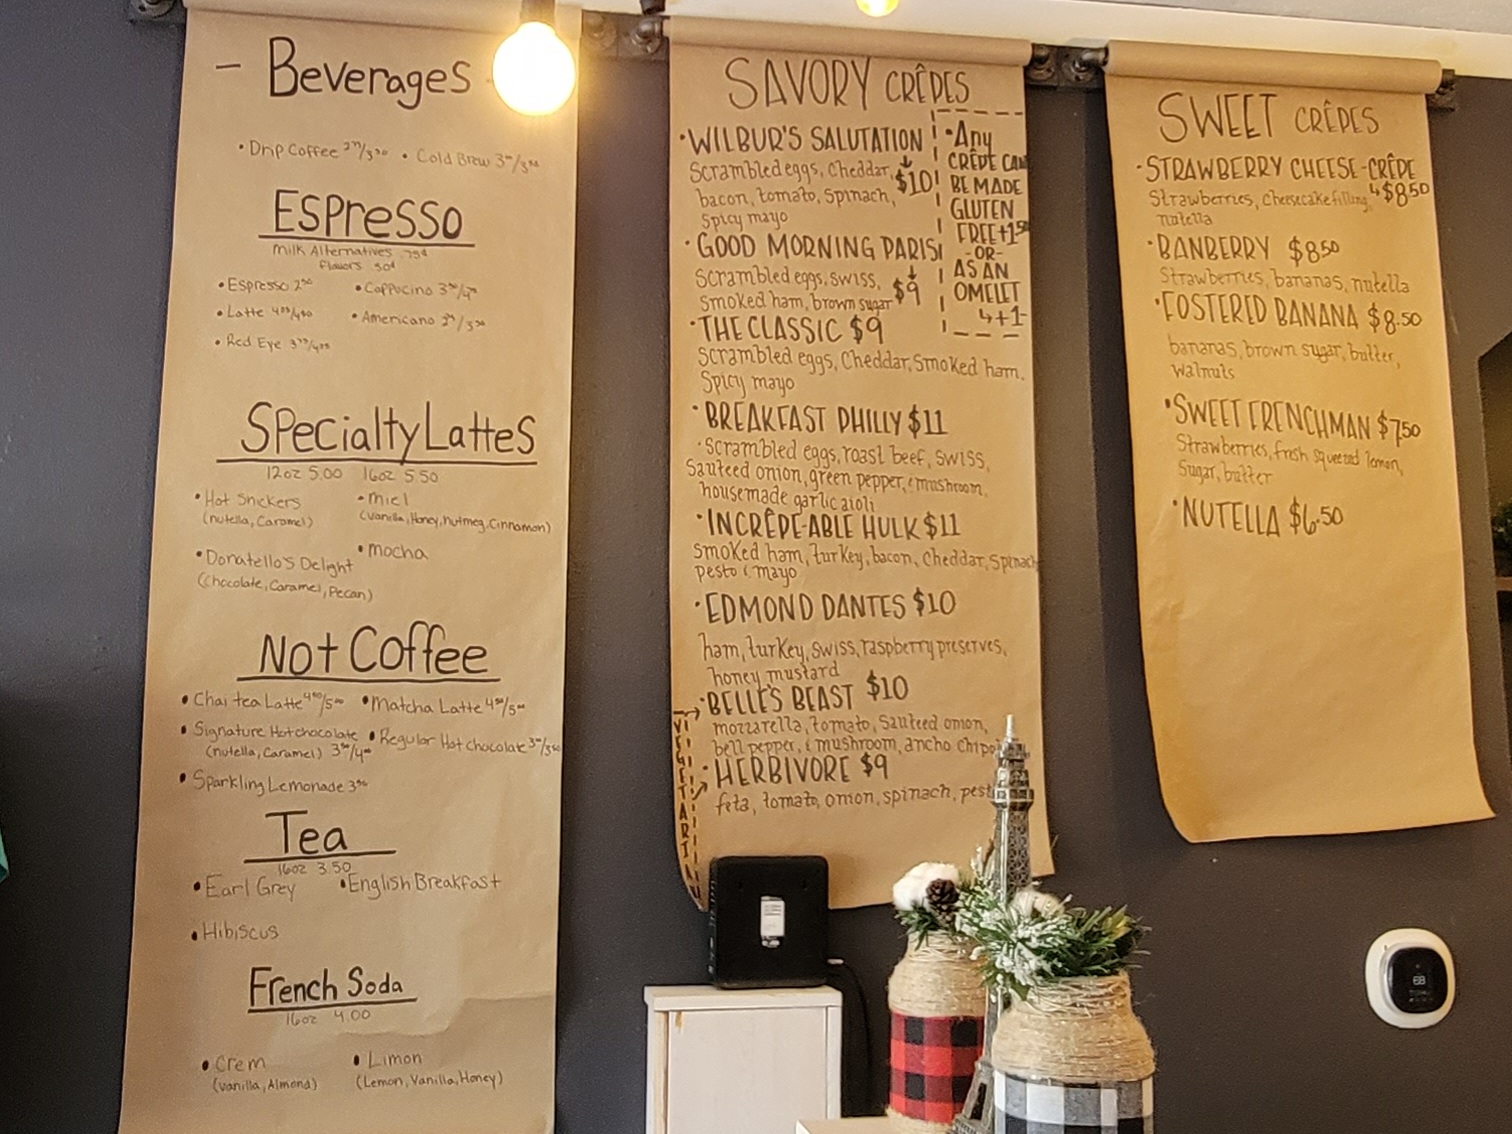 - Beverages
• Drip Coffee • Cold Brew
Espresso
Milk Alternatives 75¢
flavors 50¢
• Espresso • Cappucino
• Latte • Americano
• Red Eye
Specialty Lattes
12oz 5.00 16oz 5.50
• Hot Snickers
(nutella, Caramel)
• Miel
(Vanilla, Honey, Nutmeg, Cinnamon)
• Donatello's Delight
(Chocolate, Caramel, Pecan)
• Mocha
Not Coffee
• Chai tea Latte • Matcha Latte
• Signature Hot chocolate
(nutella, Caramel)
• Regular Hot chocolate
• Sparkling Lemonade
Tea
16oz 3.50
• Earl Grey • English Breakfast
• Hibiscus
French Soda
16oz 4.00
• Crem
(Vanilla, Almond)
• Limon
(Lemon, Vanilla, Honey)
SAVORY CRÊPES
• WILBUR'S SALUTATION
Scrambled eggs, Cheddar, $10
bacon, tomato, spinach,
Spicy mayo
• GOOD MORNING PARIS
Scrambled eggs, swiss,
smoked ham, brown sugar $9
• THE CLASSIC $9
Scrambled eggs, Cheddar, smoked ham,
Spicy mayo
• BREAKFAST PHILLY $11
• scrambled eggs, roast beef, swiss,
sauteed onion, green pepper, & mushroom,
housemade garlic aioli
• INCRÊPE-ABLE HULK $11
smoked ham, turkey, bacon, cheddar, Spinach
pesto & mayo
• EDMOND DANTES $10
ham, turkey, swiss, raspberry preserves,
honey mustard
• BELLE'S BEAST $10
mozzarella, tomato, sauteed onion,
bell pepper, & mushroom, ancho
• HERBIVORE $9
feta, tomato, onion, spinach,
VEGETARIAN
• Any
CRÊPE CAN
BE MADE
GLUTEN
FREE +1.50
-OR-
AS AN
OMELET
↳ +1-
SWEET CRÊPES
• STRAWBERRY CHEESE-CRÊPE
Strawberries, cheesecake filling, ↳ $8.50
nutella
• BANBERRY $8.50
Strawberries, bananas, nutella
• FOSTERED BANANA $8.50
bananas, brown sugar, butter,
walnuts
• SWEET FRENCHMAN $7.50
Strawberries, fresh squeezed lemon,
Sugar, butter
• NUTELLA $6.50
68